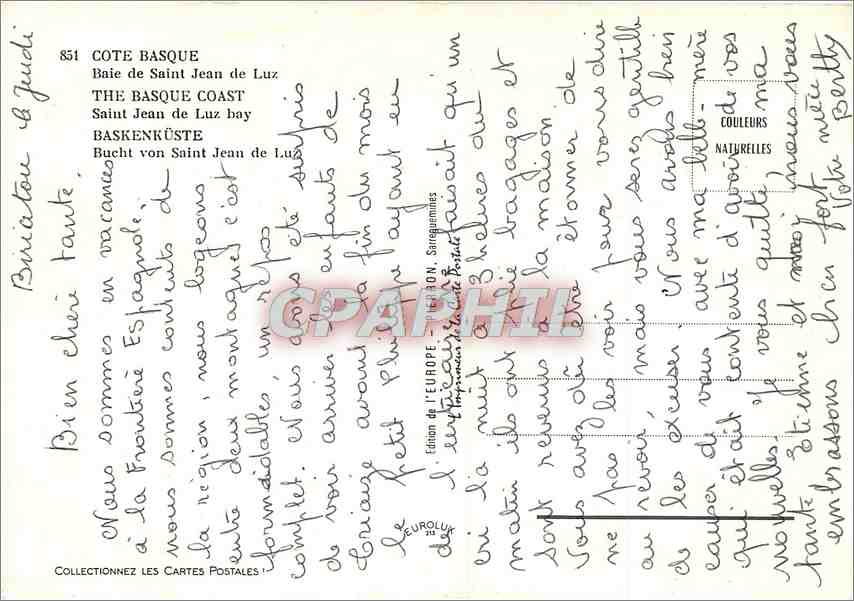 851 COTE BASQUE
Baie de Saint Jean de Luz
THE BASQUE COAST
Saint Jean de Luz bay
BASKENKÜSTE
Bucht von Saint Jean de Luz
COULEURS
NATURELLES
Edition de l'EUROPE - PIERRON, Sarreguemines
L'Imprimeur de la Carte Postale
EUROLUX
213
COLLECTIONNEZ LES CARTES POSTALES !
CPAPHIL
Biriatou le Jeudi
Bien chère tante.
Nous sommes en vacances
à la Frontière Espagnole,
nous sommes contents de
la région, nous logeons
entre deux montagnes c'est
formidable, un repos
complet. Nous avons été surpris
de voir arriver les enfants de
avant la fin du mois
le petit Philippe ayant eu
de l'urticaire, ne faisait qu'un
cri la nuit à 3 heures du
matin ils ont fait bagages et
sont revenus à la maison
Vous avez dû être étonner de
ne pas les voir pour vous dire
au revoir, mais vous serez gentille
de les excuser. Nous avons bien
causer de vous avec ma belle-mère
qui était contente d'avoir de vos
nouvelles. Je vous quitte, ma
tante Etienne et moi, nous vous
embrassons bien fort
Votre nièce Berthy